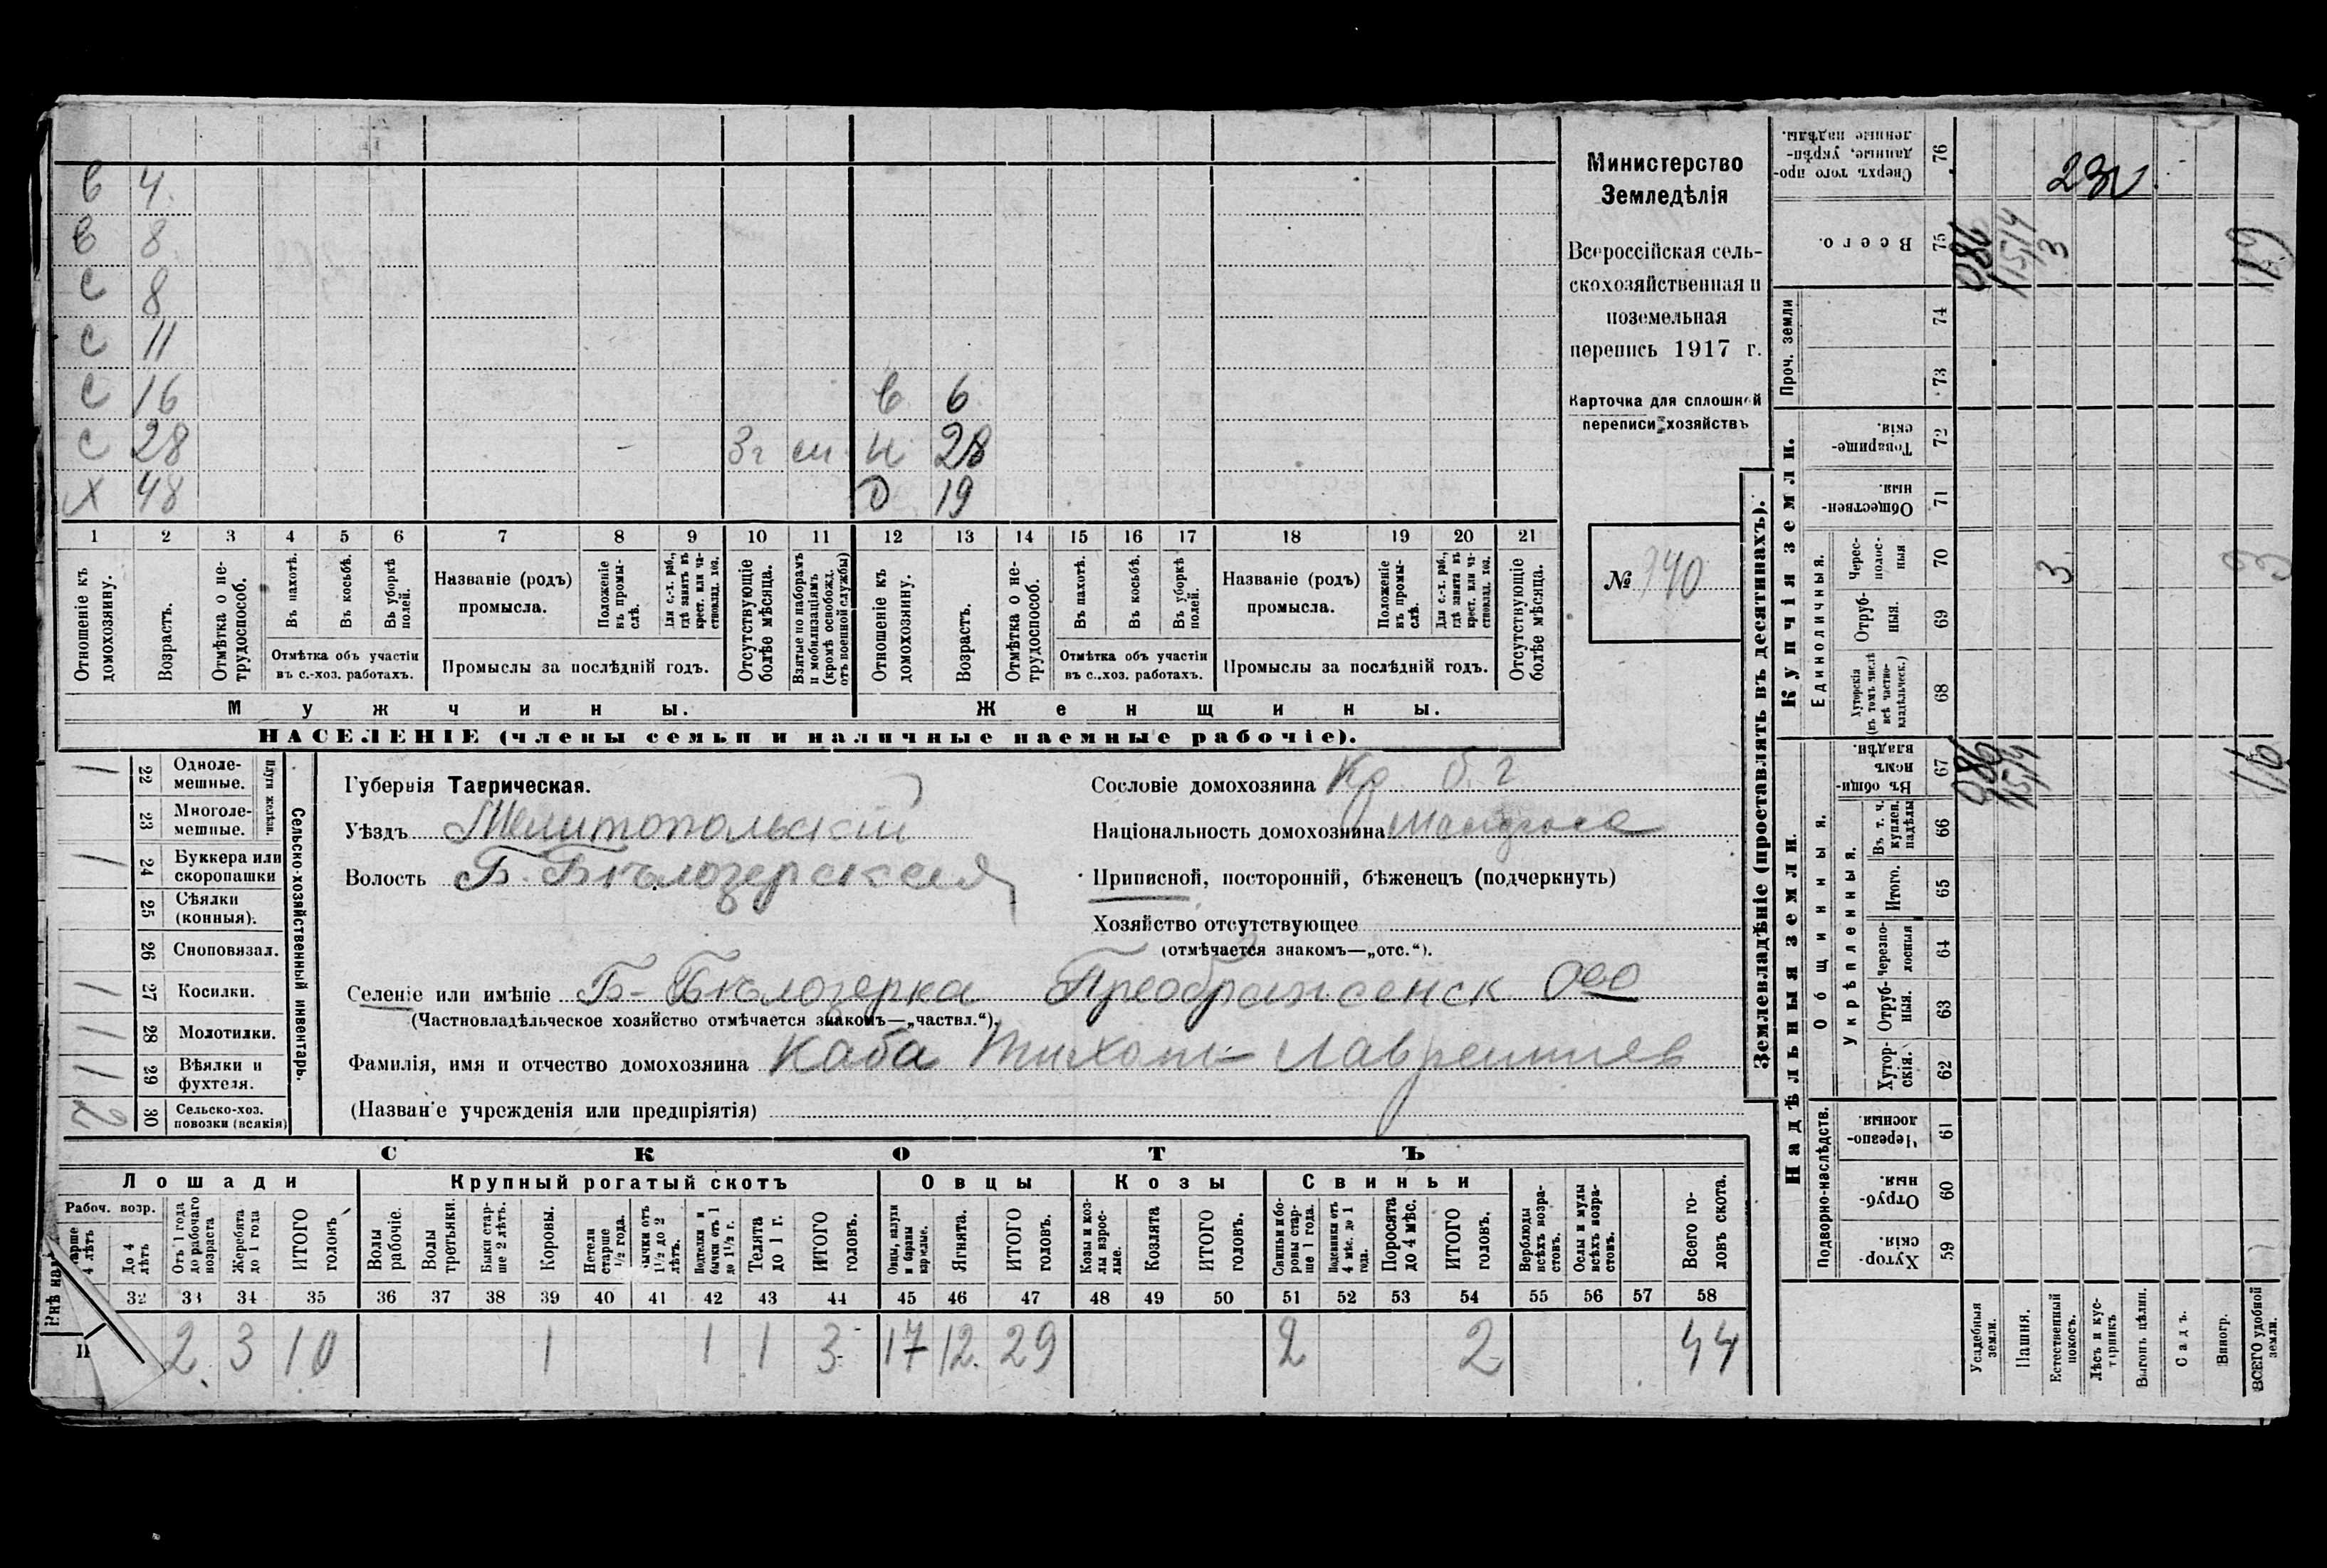 в 4
в 8
с 8
с 11
с 16 в 6
с 28 3г см н 28
х 48 D 19
1 2 3 4 5 6 7 8 9 10 11 12 13 14 15 16 17 18 19 20 21
Отношеніе къ домохозяину.
Возрастъ.
Отмѣтка о не-трудоспособ.
Въ пахотѣ.
Въ косьбѣ.
Въ уборкѣ полей.
Отмѣтка объ участіи
въ с.-хоз. работахъ.
Названіе (родъ)
промысла.
Положеніе въ промы-слѣ.
Для с.-х. раб., гдѣ занятъ въ крест. или ча-стновлад. хоз.
Промыслы за послѣдній годъ.
Отсутствующіе болѣе мѣсяца.
Взятые по наборамъ и мобилизаціямъ (кромѣ освобожд. отъ военной службы)
Отношеніе къ домохозяину.
Возрастъ.
Отмѣтка о не-трудоспособ.
Въ пахотѣ.
Въ косьбѣ.
Въ уборкѣ полей.
Отмѣтка объ участіи
въ с..хоз. работахъ.
Названіе (родъ)
промысла.
Положеніе въ промы-слѣ.
Для с.-х. раб., гдѣ занята въ крест. или ча-стновлад. хоз.
Промыслы за послѣдній годъ.
Отсутствующіе болѣе мѣсяца.
Мужчины. Женщины.
НАСЕЛЕНІЕ (члены семьи и наличные наемные рабочіе).
Министерство
Земледѣлія
Всероссійская сель-
скохозяйственная и
поземельная
перепись 1917 г.
Карточка для сплошной
переписи хозяйствъ
№ 140
Сельско-хозяйственный инвентарь.
Плуги желѣзн.
1 22 Одноле-мешные.
23 Многоле-мешные.
1 24 Буккера или скоропашки
25 Сѣялки (конныя).
26 Сноповязал.
1 27 Косилки.
1 28 Молотилки.
1 29 Вѣялки и фухтеля.
2 30 Сельско-хоз. повозки (всякія)
Губернія Таврическая.
Уѣздъ Мелитопольскій
Волость Б. Бѣлозерская
Сословіе домохозяина Кр. б. г
Національность домохозяина
Приписной, посторонній, бѣженецъ (подчеркнуть)
Хозяйство отсутствующее
(отмѣчается знакомъ—„отс.“).
Селеніе или имѣніе Б-Бѣлозерка Преображенск. Ово
(Частновладѣльческое хозяйство отмѣчается знакомъ—„частвл.“).
Фамилія, имя и отчество домохозяина Каба Тихон Лаврентиев
(Названіе учрежденія или предпріятія)
СКОТЪ
Лошади Крупный рогатый скотъ Овцы Козы Свиньи
Рабоч. возр.
До 4 лѣтъ
Отъ 1 года до рабочаго возраста
Жеребята до 1 года
ИТОГО головъ
Волы рабочіе.
Волы третьяки.
Быки стар-ше 2 лѣтъ.
Коровы.
Нетели старше 1/2 года.
Бычки отъ 1 1/2 до 2 лѣтъ.
Подтелки и бычки отъ 1 до 1 1/2 г.
Телята до 1 г.
ИТОГО головъ.
Овцы, валухи и бараны взрослые.
Ягнята.
ИТОГО головъ.
Козы и коз-лы взрос-лые.
Козлята
ИТОГО головъ.
Свиньи и бо-ровы стар-ше 1 года.
Подсвинки отъ 4 мѣс. до 1 года.
Поросята до 4 мѣс.
ИТОГО головъ.
Верблюды всѣхъ возра-стовъ.
Ослы и мулы всѣхъ возра-стовъ.
Всего го-ловъ скота.
32 33 34 35 36 37 38 39 40 41 42 43 44 45 46 47 48 49 50 51 52 53 54 55 56 57 58
2 3 10 1 1 1 3 17 12 29 2 2 44
Землевладѣніе (проставлять въ десятинахъ).
Надѣльныя земли. Купчія земли. Проч. земли
Подворно-наслѣдств. Общинныя. Укрѣпленныя. Единоличныя.
59 Хутор-скія.
60 Отруб-ныя.
61 Черезпо-лосныя
62 Хутор-скія.
63 Отруб-ныя.
64 Черезпо-лосныя
65 Итого.
66 Въ т. ч. куплен. надѣлы
67 Въ общи-номъ владѣн.
68 Хуторскія (въ томъ числѣ всѣ частно-владѣльческ.)
69 Отруб-ныя.
70 Черес-полос-ныя
71 Обществен-ныя.
72 Товарище-скія.
73
74
75 Всего.
76 Сверхъ того про-данные, укрѣп-ленные надѣлы.
Усадебныя земли. 086 086
Пашня. 1514 1514
Естественный покосъ. 3 3
Лѣсъ и кус-тарникъ
Выгонъ цѣлин.
Садъ.
Виногр.
ВСЕГО удобной земли. 16 3 19